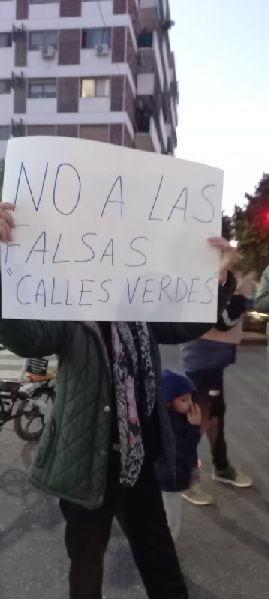 NO A LAS
FALSAS
"CALLES VERDES"